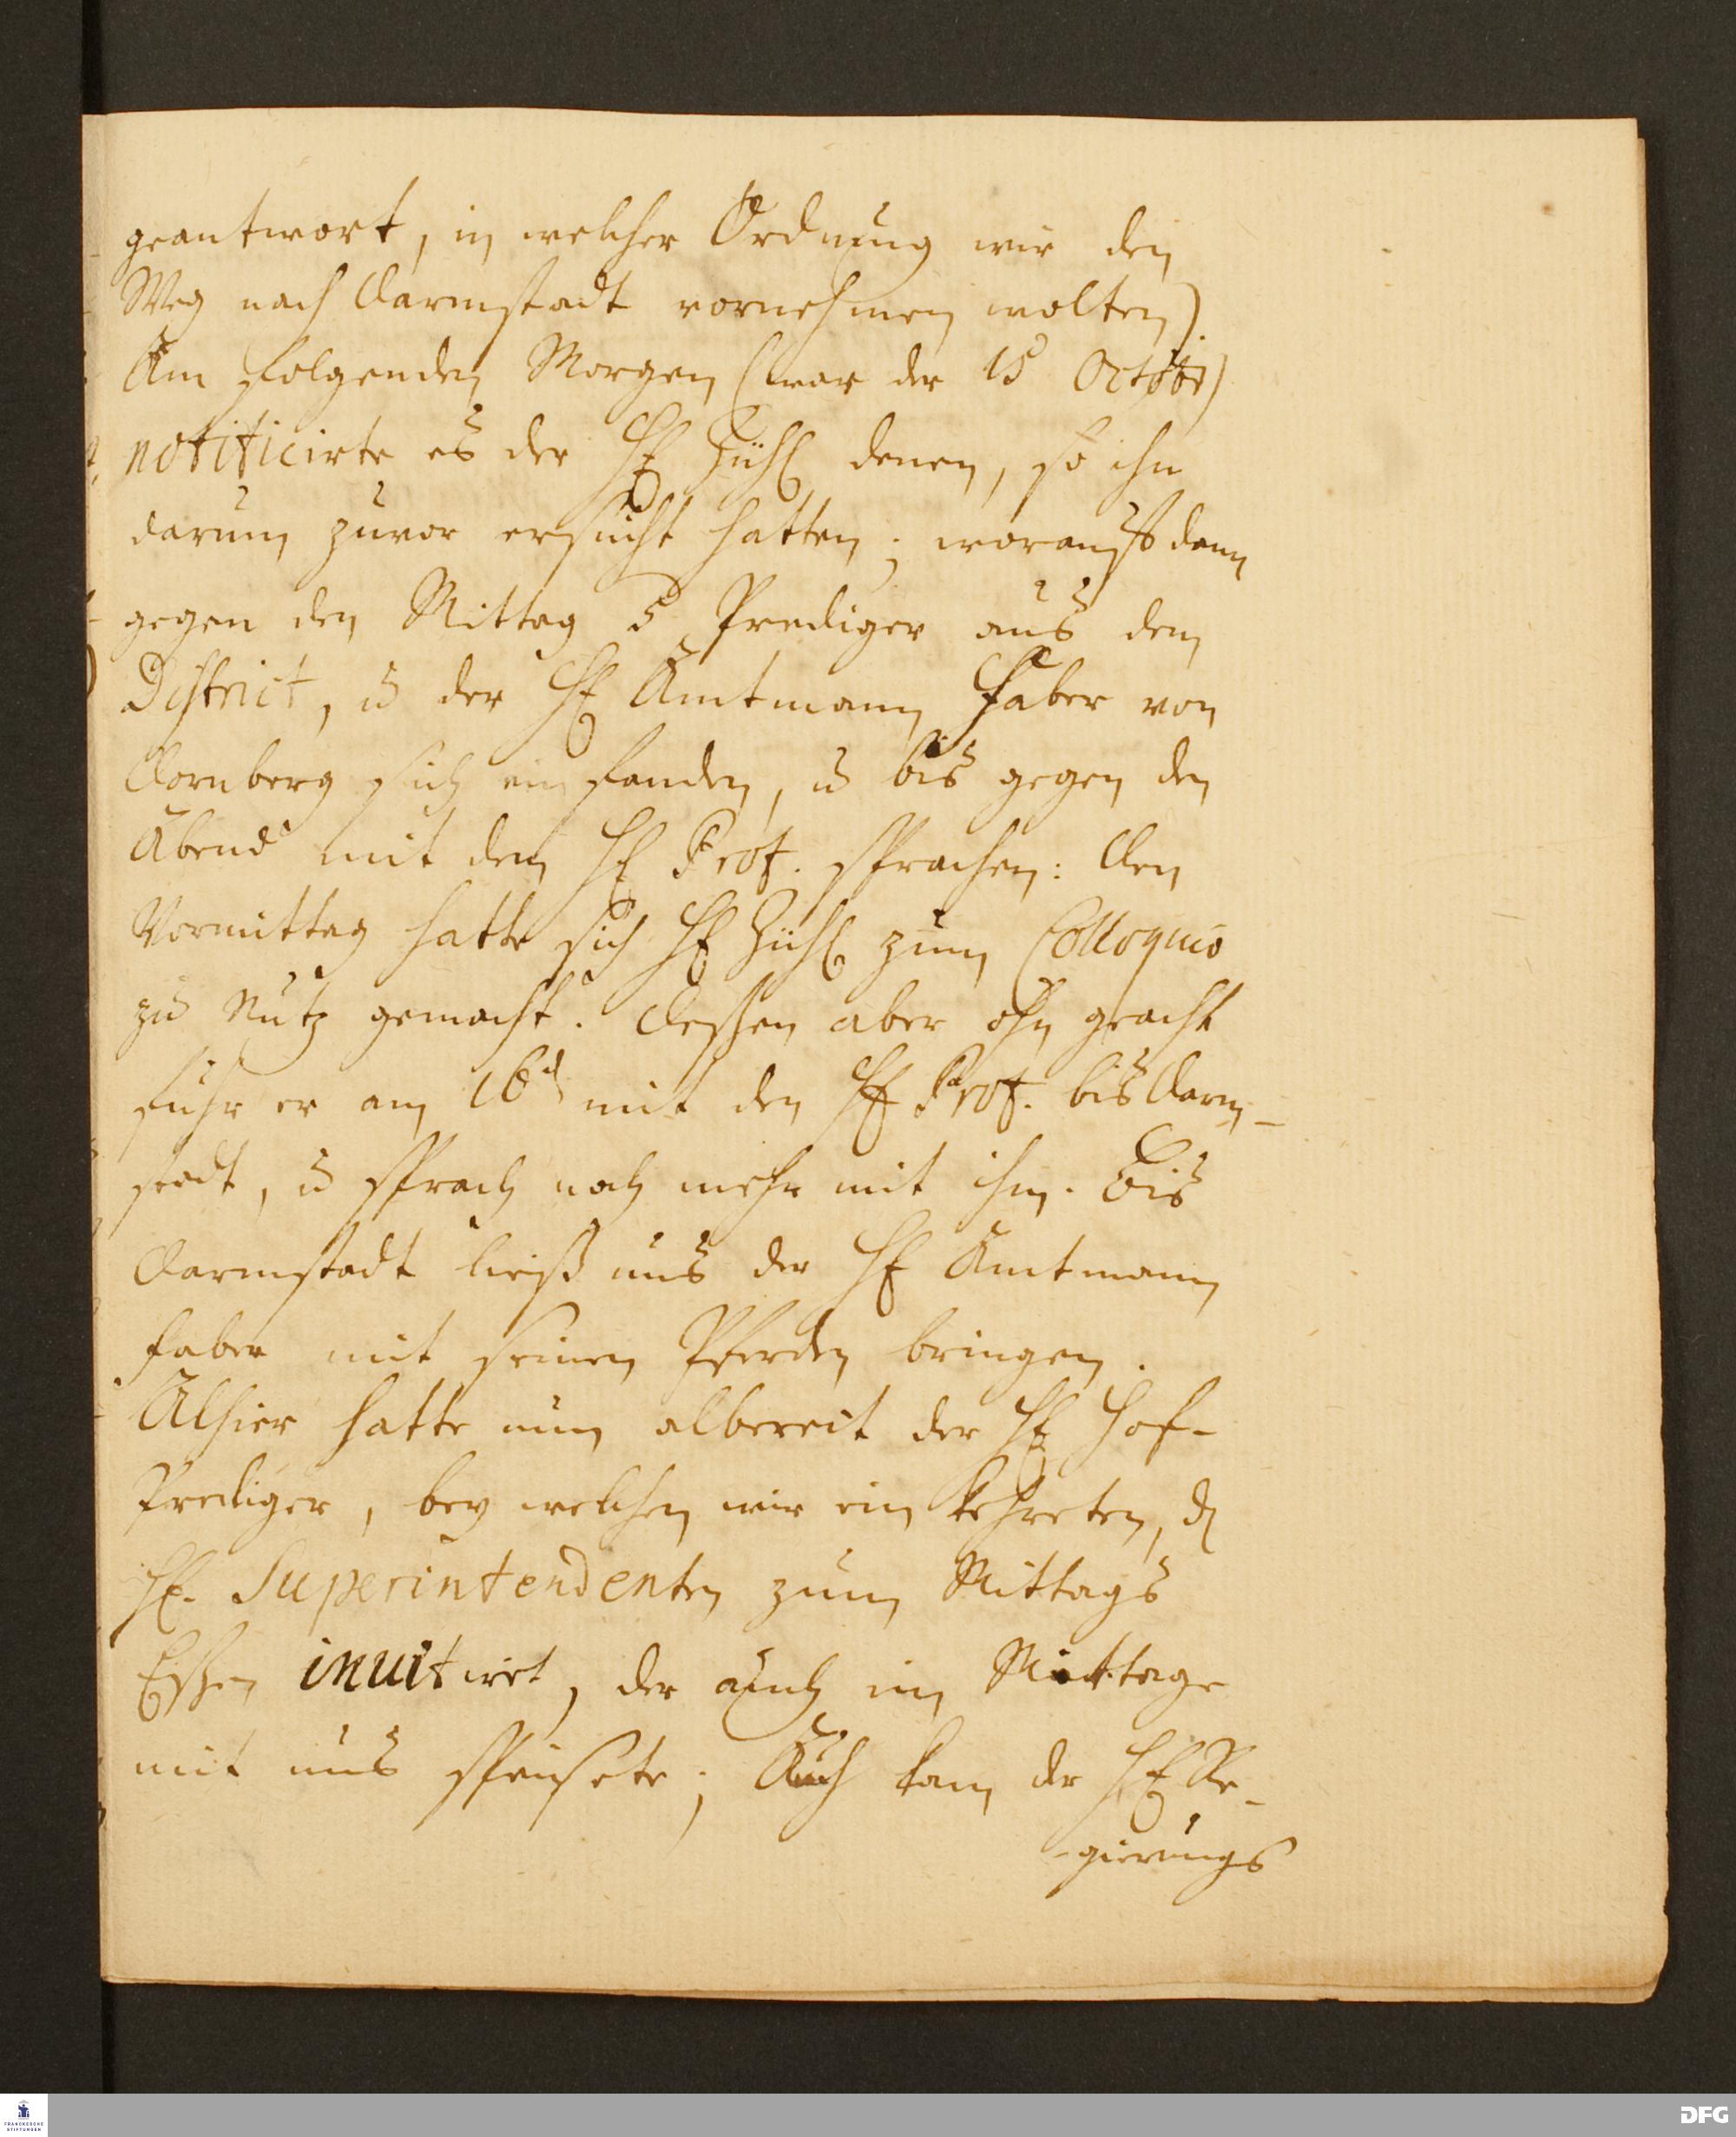 geantwort, in welcher Ordnung wir den
Weg nach Darmstadt vornehmen wolten).
Am folgenden Morgen (war der 15 Octobr)
notificirte es der H. Zühl denen, so ihn
darum zuvor ersucht hatten; worauf dann
gegen den Mittag 5 Prediger aus dem
District, u der H. Amtmann Faber von
Dornberg sich ein fanden, u bis gegen den
Abend mit dem H. Prof. sprachen: Den
Vormittag hatte sich H. Zühl zum Colloquio
zu Nutz gemacht. Dessen aber ohn geacht
fuhr er am 16d mit den H. Prof. bis Darm-
stadt, u sprach noch mehr mit ihm. Bis
Darmstadt ließ uns der H. Amtmann
Faber mit seinen Pferden bringen.
Alhier hatte nun albereit der H. Hof-
Prediger, bey welchen wir ein kehreten, d
H. Superintendenten zum Mittags
Essen inuitirt, der auch im Mittage
mit uns speisete; Auch kam der H. Re-
-gierungs
FRANCKESCHE
STIFTUNGEN
DFG